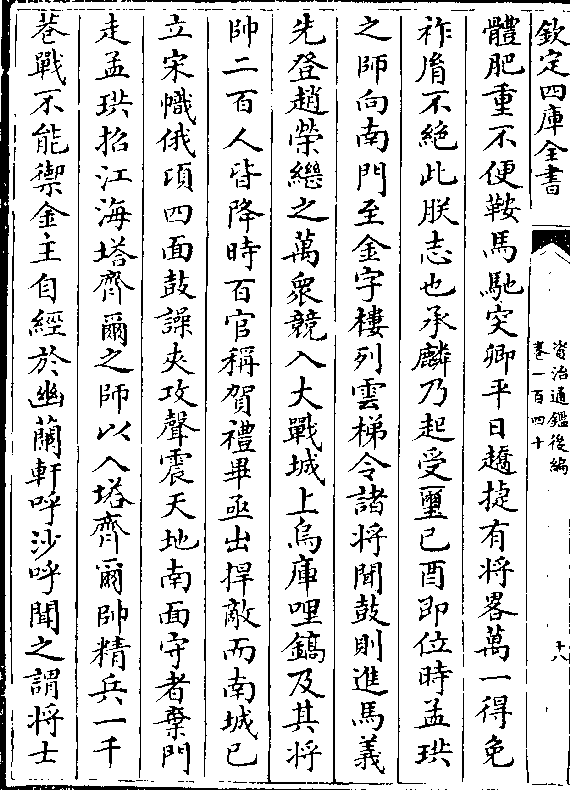 欽定四庫全書
資治通鑑後編
卷一百四十
十八
體肥重不便鞍馬馳突卿平日趫捷有將畧萬一得免
祚脩不絕此朕志也承麟乃起受璽已酉即位時孟珙
之師向南門至金字樓列雲梯令諸將聞鼓則進馬義
先登趙榮繼之萬衆競入大戰城上烏庫哩鎬及其將
帥二百人皆降時百官稱賀禮畢亟出捍敵而南城已
立宋幟俄頃四面鼓譟夾攻聲震天地南面守者棄門
走孟珙招江海塔齊爾之師以入塔齊爾帥精兵一千
巷戰不能禦金主自經於幽蘭軒呼沙呼聞之謂將士